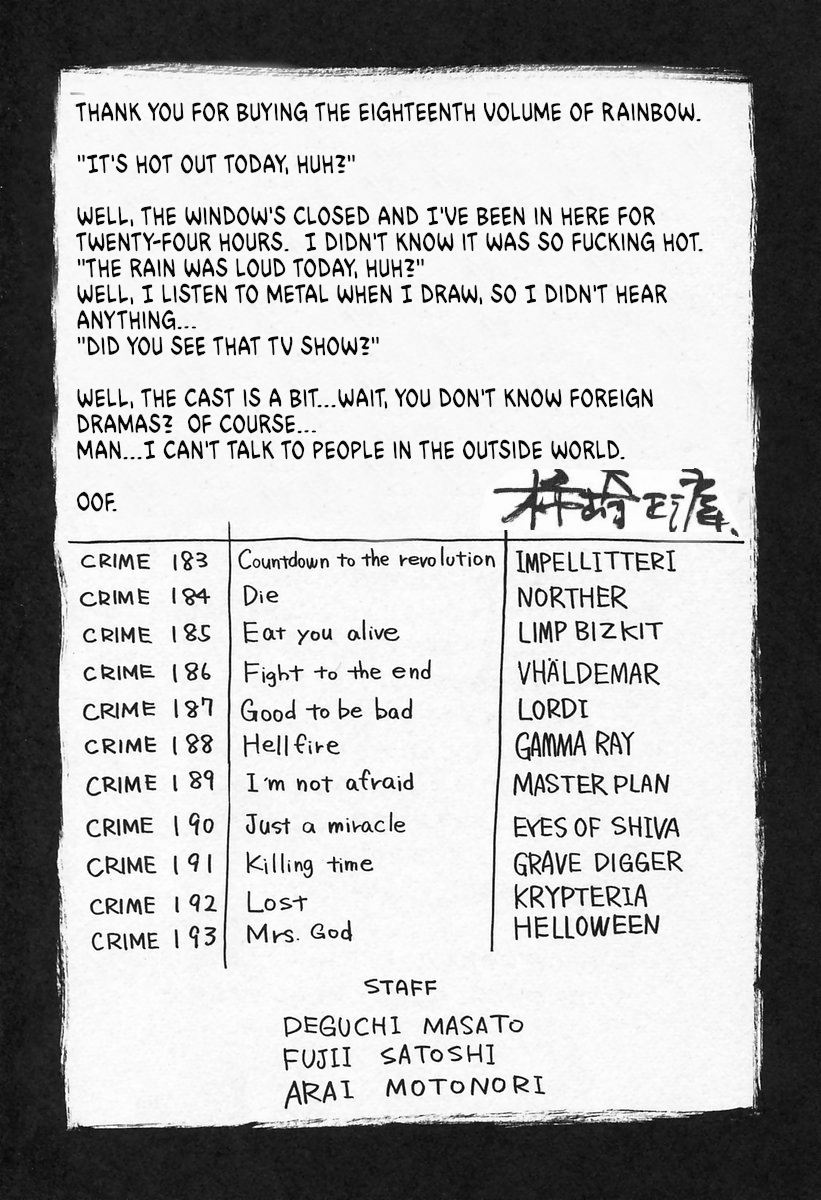 THANK YOU FOR BUYING THE EIGHTEENTH VOLUME OF RAINBOW.
"IT'S HOT OUT TODAY, HUH?"
WELL, THE WINDOW'S CLOSED AND I'VE BEEN IN HERE FOR
TWENTY-FOUR HOURS. I DIDN'T KNOW IT WAS SO FUCKING HOT.
"THE RAIN WAS LOUD TODAY, HUH?"
WELL, I LISTEN TO METAL WHEN I DRAW, SO I DIDN'T HEAR
ANYTHING...
"DID YOU SEE THAT TV SHOW?"
WELL, THE CAST IS A BIT...WAIT, YOU DON'T KNOW FOREIGN
DRAMAS? OF COURSE...
MAN...I CAN'T TALK TO PEOPLE IN THE OUTSIDE WORLD.
OOF.
柿崎正澄
CRIME 183 Countdown to the revolution IMPELLITTERI
CRIME 184 Die NORTHER
CRIME 185 Eat you alive LIMP BIZKIT
CRIME 186 Fight to the end VHÄLDEMAR
CRIME 187 Good to be bad LORDI
CRIME 188 Hellfire GAMMA RAY
CRIME 189 I'm not afraid MASTER PLAN
CRIME 190 Just a miracle EYES OF SHIVA
CRIME 191 Killing time GRAVE DIGGER
CRIME 192 Lost KRYPTERIA
CRIME 193 Mrs. God HELLOWEEN
STAFF
DEGUCHI MASATO
FUJII SATOSHI
ARAI MOTONORI